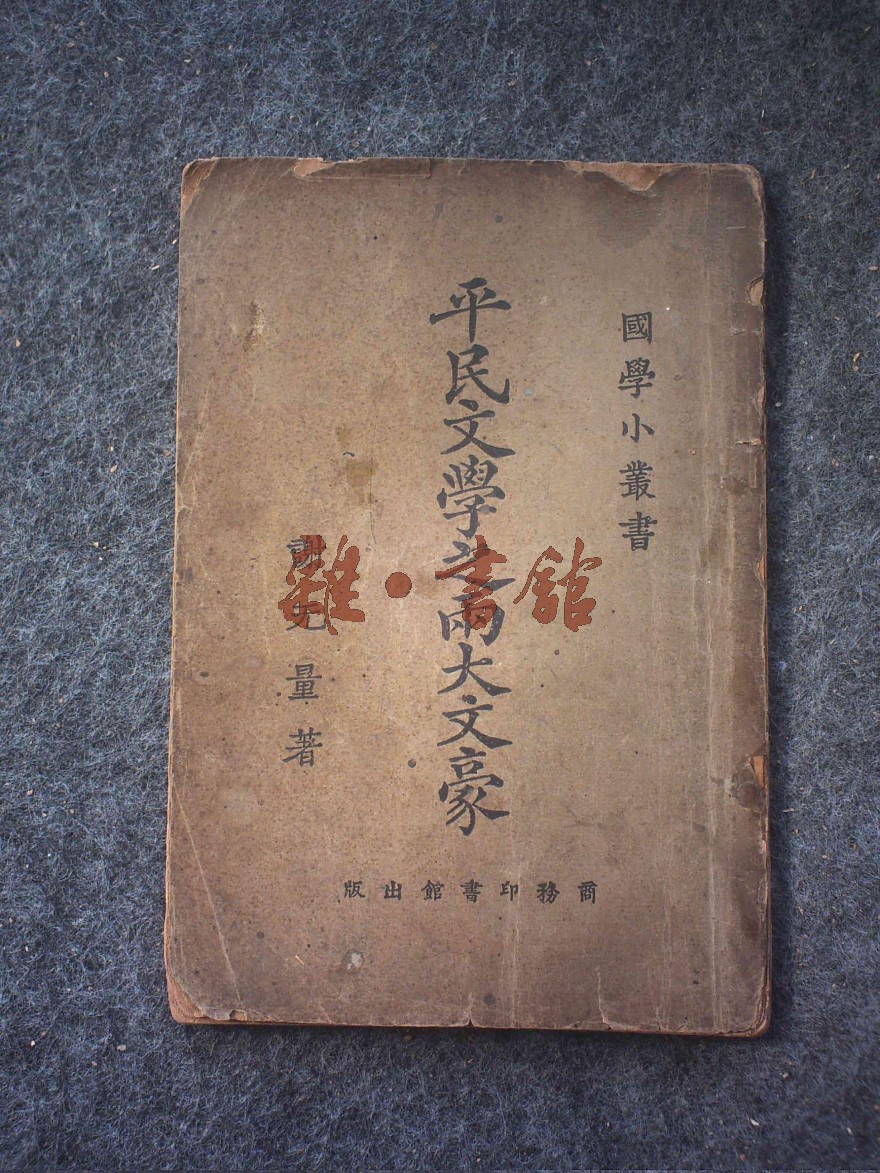 國學小叢書
平民文學之兩大文豪
謝无量著
商務印書館出版
雜·書館